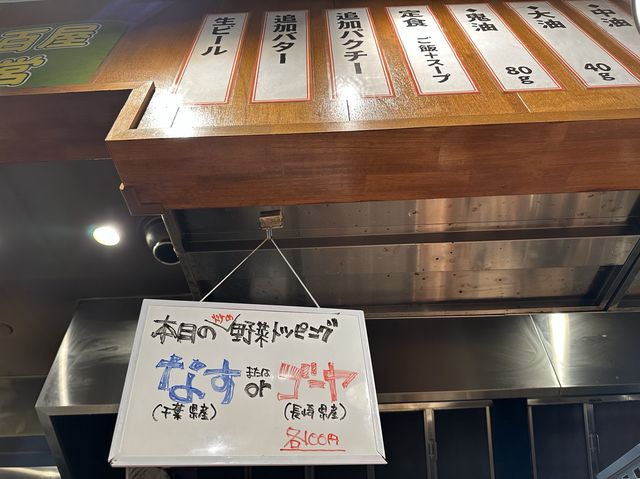 生ビール
追加バター
追加パクチー
定食 ご飯+スープ
鬼油 80g
大油 40g
中油
本日の 野菜トッピング
なす または or ゴーヤ
(千葉県産) (長崎県産)
各100円